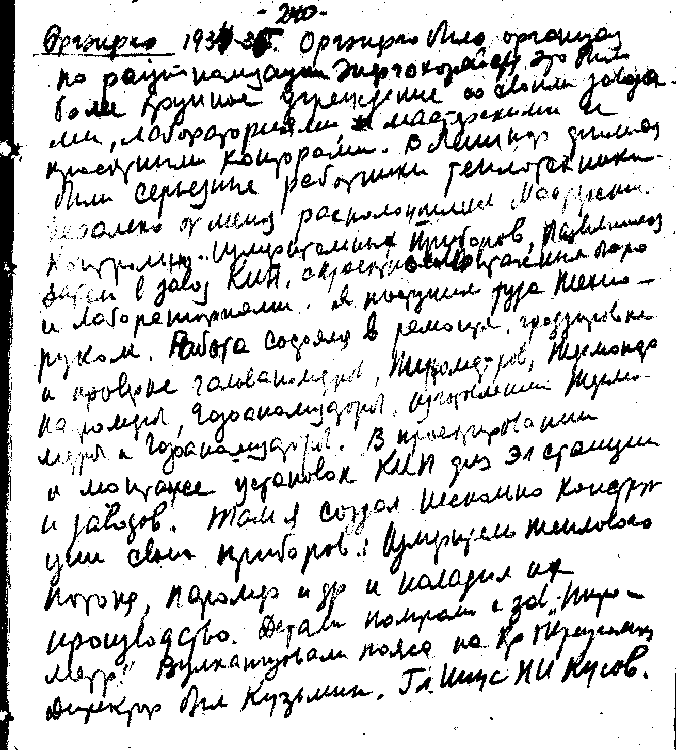 - 240 -
Оргэнерго 1934-35. Оргэнерго было организац
по рационализации Энергохозяйств, это было
более крупное учреждение со своими завода-
ми, лабораториями, и мастерскими и
проектными конторами. В Ленингр
были серьезные работники теплотехники.
Недалеко от меня расположились Мастерские
Контрольно-Измерительных Приборов,
затем в завод КИП, с проектно монтажным бюро
и лабораториями. Я поступил туда техно-
руком. Работа состояла в ремонте, градуировке
и проверке гальванометров, пирометров, термопар
паромеров, газоанализаторов, изготовлении термо-
метров и газоанализаторов. В проектировании
и монтаже установок КИП для эл станции
и заводов. Там я создал несколько констр
ций своих приборов: Измеритель теплового
потока, паромер и др и наладил их
производство. Детали получали с зав. "Пиро-
метр". Вулканизовали пояса на Кр Треугольник
Директор был Кузьмин. Гл Инж Н И Кусов.